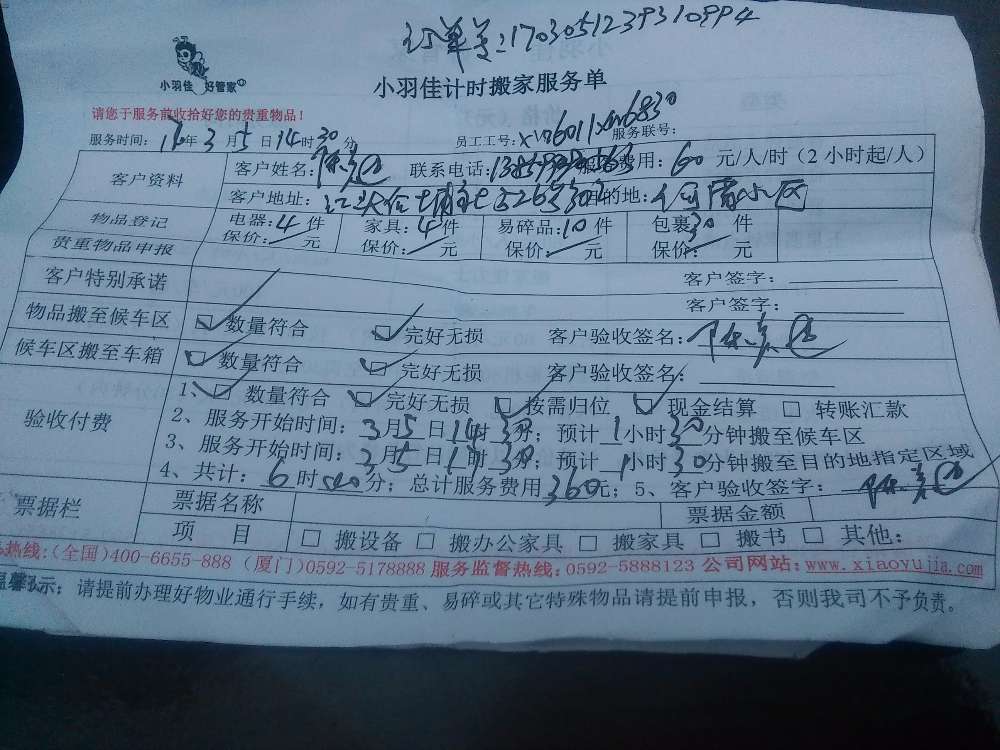 订单号:170305123931099 4
小羽佳 好管家
小羽佳计时搬家服务单
请您于服务前收拾好您的贵重物品!
服务时间: 年3月5日14时30分 员工工号:XM06011XM06830 服务联号:
客户资料 客户姓名: 联系电话: 费用:60元/人/时(2小时起/人)
客户地址: 目的地: 小区
物品登记 电器:4件 家具:4件 易碎品:10件 包裹30件
贵重物品申报 保价: 元 保价: 元 保价: 元 保价 元
客户特别承诺 客户签字:
客户签字:
物品搬至候车区 数量符合 完好无损 客户验收签名:
候车区搬至车箱 数量符合 完好无损 客户验收签名:
验收付费 1、数量符合 完好无损 按需归位 现金结算 转账汇款
2、服务开始时间:3月5日14时30分;预计1小时30分钟搬至候车区
3、服务开始时间:3月5日17时30分;预计1小时30分钟搬至目的地指定区域
4、共计:6时 分;总计服务费用360元;5、客户验收签字:
票据栏 票据名称 票据金额
项 目 搬设备 搬办公家具 搬家具 搬书 其他:
热线:(全国)400-6655-888 (厦门)0592-5178888 服务监督热线:0592-5888123 公司网站:www.xiaoyujia.com
温馨提示:请提前办理好物业通行手续,如有贵重、易碎或其它特殊物品请提前申报,否则我司不予负责。